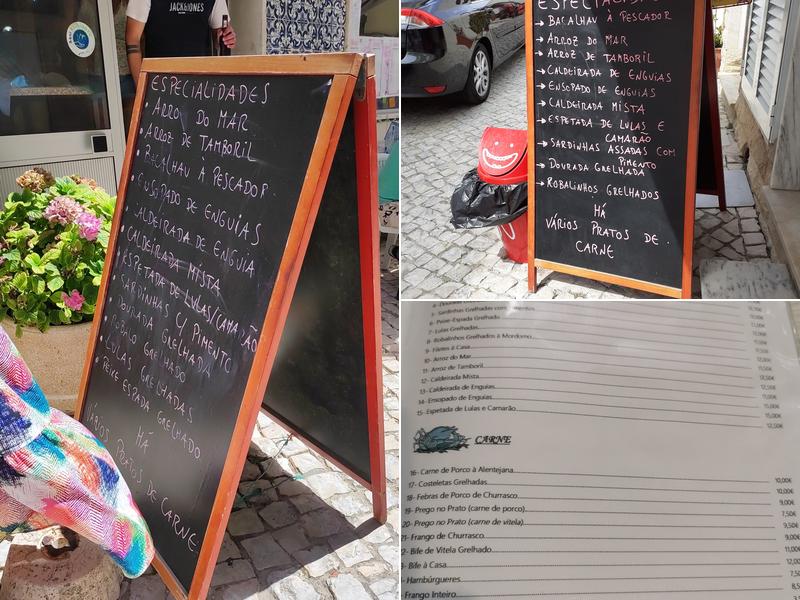 JACK&JONES
ESPECIALIDADES
• ARROZ DO MAR
• ARROZ DE TAMBORIL
• BACALHAU À PESCADOR
• ENSOPADO DE ENGUIAS
• CALDEIRADA DE ENGUIA
• CALDEIRADA MISTA
• ESPETADA DE LULAS/CAMARÃO
• SARDINHAS C/ PIMENTO
• DOURADA GRELHADA
• ROBALO GRELHADO
• LULAS GRELHADAS
• PEIXE ESPADA GRELHADO
HÁ
VÁRIOS PRATOS DE CARNE
ESPECIALIDADES
→ BACALHAU À PESCADOR
→ ARROZ DO MAR
→ ARROZ DE TAMBORIL
→ CALDEIRADA DE ENGUIAS
→ ENSOPADO DE ENGUIAS
→ CALDEIRADA MISTA
→ ESPETADA DE LULAS E
CAMARÃO
→ SARDINHAS ASSADAS COM
PIMENTO
→ DOURADA GRELHADA
→ ROBALINHOS GRELHADOS
HÁ
VÁRIOS PRATOS DE
CARNE
5- Sardinhas Grelhadas com
6- Peixe-Espada Grelhado
7- Lulas Grelhadas
8- Robalinhos Grelhados à Mordomo
9- à Casa
10- Arroz do Mar
11- Arroz de Tamboril
12- Caldeirada Mista
13- Caldeirada de Enguias
14- Ensopado de Enguias 15,00€
15- Espetada de Lulas e Camarão 12,50€
CARNE
16- Carne de Porco à Alentejana 10,00€
17- Costeletas Grelhadas 10,00€
18- Febras de Porco de Churrasco 9,00€
19- Prego no Prato (carne de porco) 7,50€
20- Prego no Prato (carne de vitela) 9,50€
21- Frango de Churrasco 9,00€
Bife de Vitela Grelhado 11,00€
Bife à Casa 12,00
Hambúrgueres 7,50
Frango Inteiro